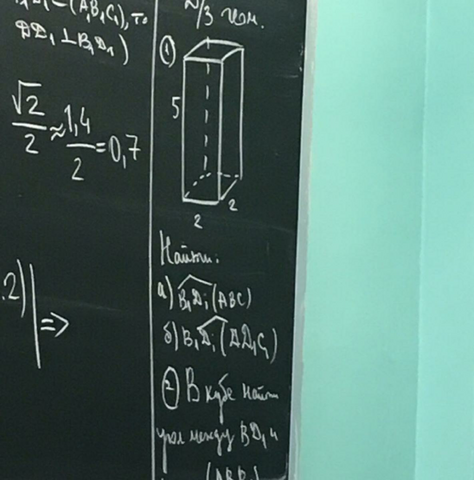 (A₁B₁C₁), то
DD₁ ⊥ B₁D₁)
√2/2 ≈ 1,4/2 = 0,7
2) | =>
Д/З геом.
①
5
2
2
Найти:
а) B₁D; (ABC)
б) B₁D; (AD₁C₁)
② В кубе найти
угол между BD₁ и